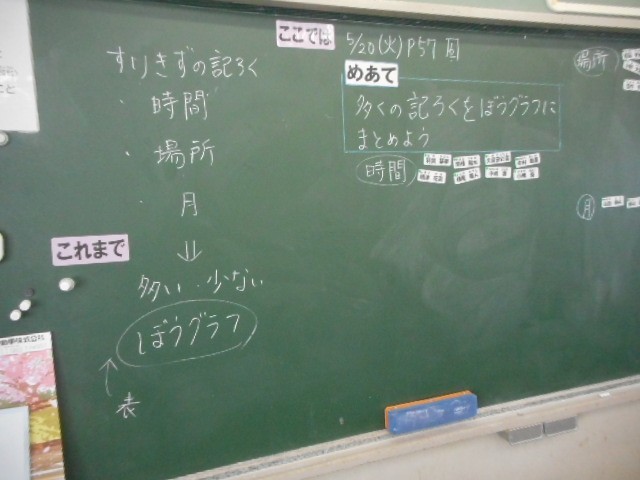 すりきずの記ろく
・時間
・場所
・月
⇓
これまで
多い・少ない
ぼうグラフ
↑
表
ここでは
5/20(火)P57
めあて
多くの記ろくをぼうグラフに
まとめよう
時間
場所
月